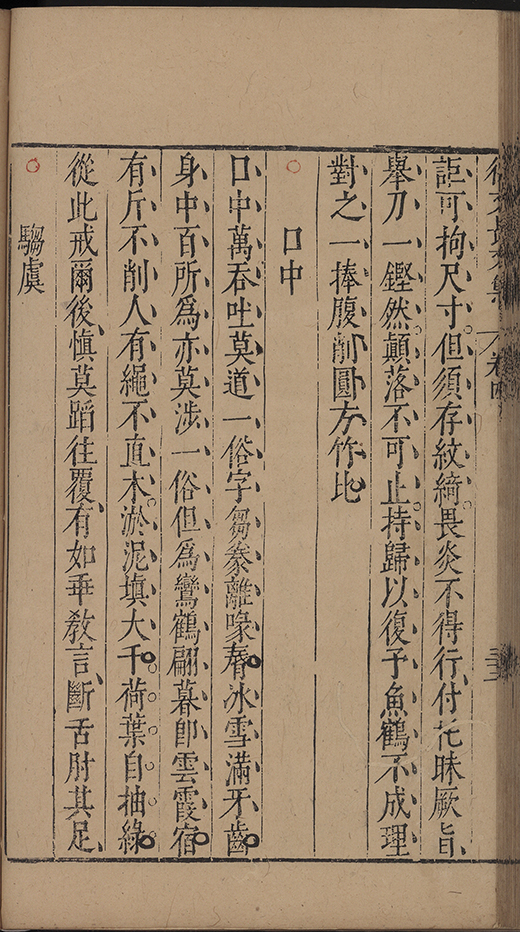 卷四
詎可拘尺寸但須存紋綺畏炎不得行付托昧厥旨
舉刀一鏗然顛落不可止持歸以復予魚鶴不成理
對之一捧腹削圓方竹比
口中
口中萬吞吐莫道一俗字芻豢離喙脣冰雪滿牙齒
身中百所為亦莫涉一俗但為鸞鶴翩暮即雲霞宿
有斤不削人有繩不直木淤泥填大千荷葉自抽綠
從此戒爾後慎莫蹈往覆有如乖教言斷舌肘其足
騶虞